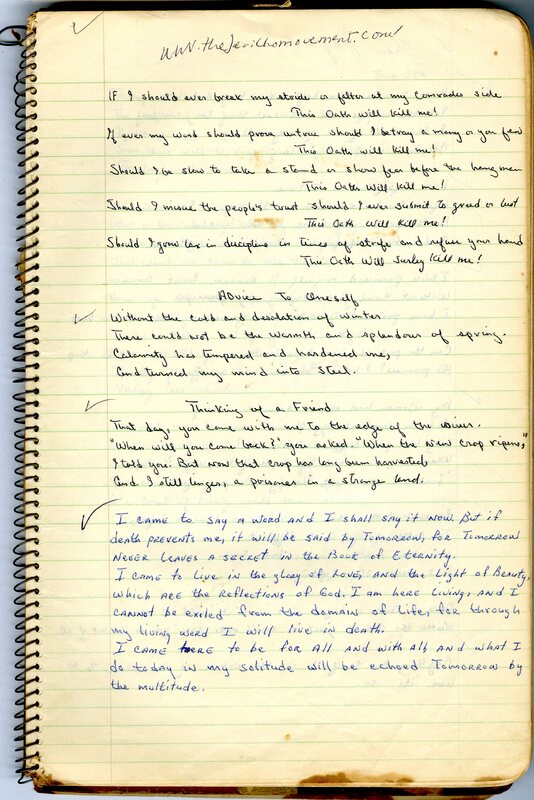 www.thejerichomovement.com
IF I should ever break my stride or falter at my comrades side
This Oath will kill me!
If ever my word should prove untrue should I betray a many or you few
This Oath will kill me!
Should I be slow to take a stand or show fear before the hangman
This Oath will kill me!
Should I misuse the people's trust should I ever submit to greed or lust
This Oath will kill me!
Should I grow lax in discipline in times of strife and refuse your hand
This Oath will surley kill me!
Advice To Oneself
Without the cold and desolation of winter
There could not be the warmth and splendour of spring.
Calamity has tempered and hardened me,
and turned my mind into steel.
Thinking of a Friend
That day, you came with me to the edge of the river.
"When will you come back?" you asked. "When the new crop ripens,"
I told you. But now that crop has long been harvested,
and I still linger, a prisoner in a strange land.
I came to say a word and I shall say it now. But if
death prevents me, it will be said by Tomorrow, for Tomorrow
never leaves a secret in the Book of Eternity.
I came to live in the glory of Love, and the Light of Beauty,
which are the reflections of God. I am here living, and I
cannot be exiled from the domain of life, for through
my living word I will live in death.
I came here to be for all and with all, and what I
do today in my solitude will be echoed Tomorrow by
the multitude.